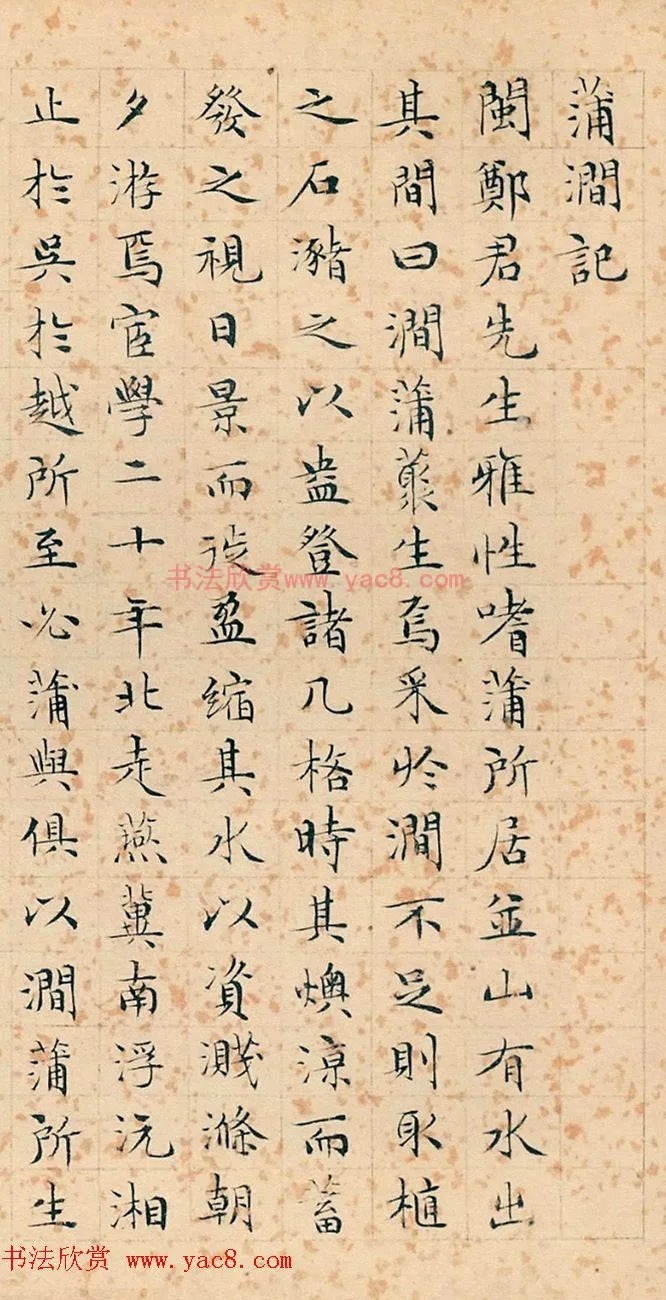 蒲澗記
閩鄭君先生雅性嗜蒲所居並山有水出
其間曰澗蒲叢生焉采於澗不足則取植
之石瀦之以盎登諸几格時其燠涼而蓄
發之視日景而徙盈縮其水以資濺滌朝
夕游焉宦學二十年北走燕冀南浮沅湘
止於吳於越所至必蒲與俱以澗蒲所生
书法欣赏www.yac8.com
书法欣赏 www.yac8.com